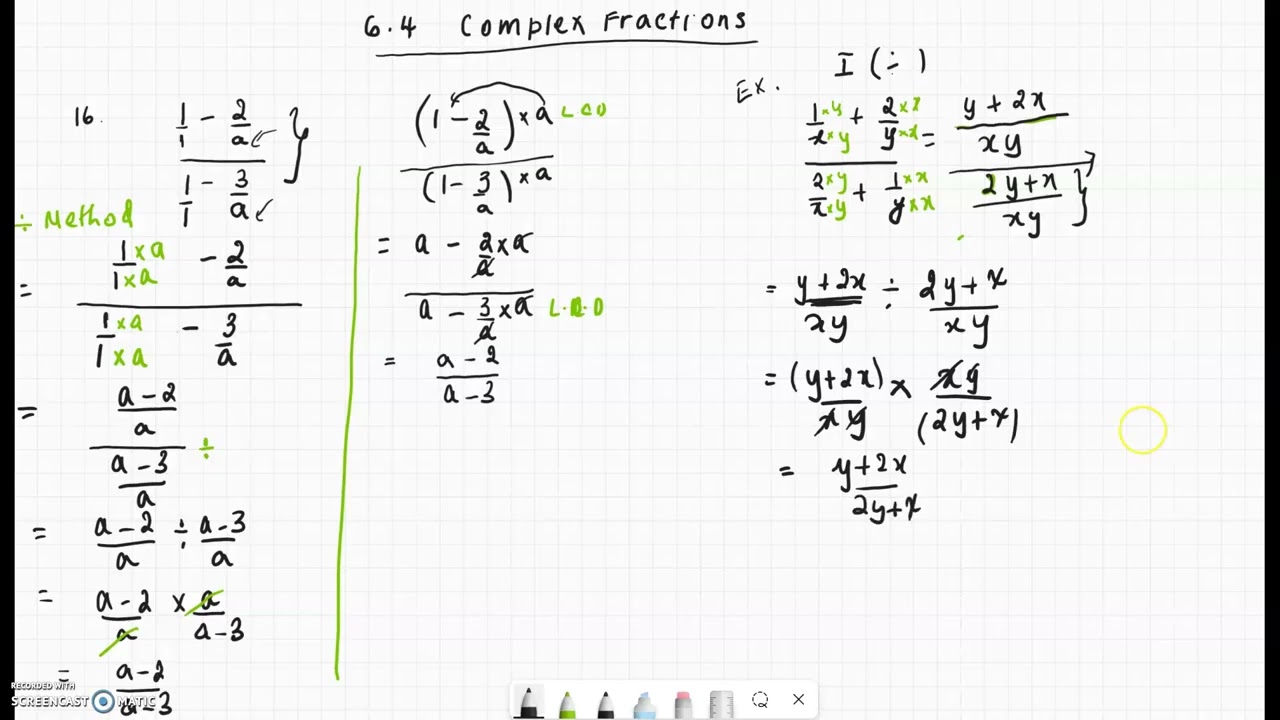 6.4 Complex Fractions
16.
1/1 - 2/a
1/1 - 3/a
÷ Method
= 1×a/1×a - 2/a
1×a/1×a - 3/a
= a-2/a
a-3/a ÷
= a-2/a ÷ a-3/a
= a-2/a × a/a-3
= a-2/a-3
(1 - 2/a) × a L.C.D
(1 - 3/a) × a
= a - 2/a × a
a - 3/a × a L.C.D
= a-2/a-3
Ex. I (÷)
1×y/x×y + 2×x/y×x = y+2x/xy
2×y/x×y + 1×x/y×x 2y+x/xy
= y+2x/xy ÷ 2y+x/xy
= (y+2x)/xy × xy/(2y+x)
= y+2x/2y+x
RECORDED WITH
SCREENCAST MATIC